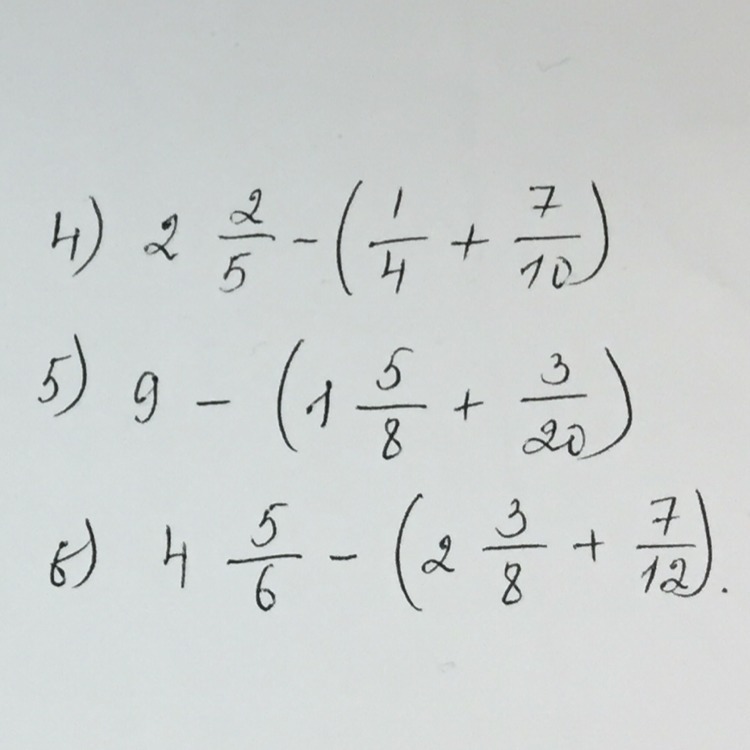 4) 2 2/5 - (1/4 + 7/10)
5) 9 - (1 5/8 + 3/20)
6) 4 5/6 - (2 3/8 + 7/12).